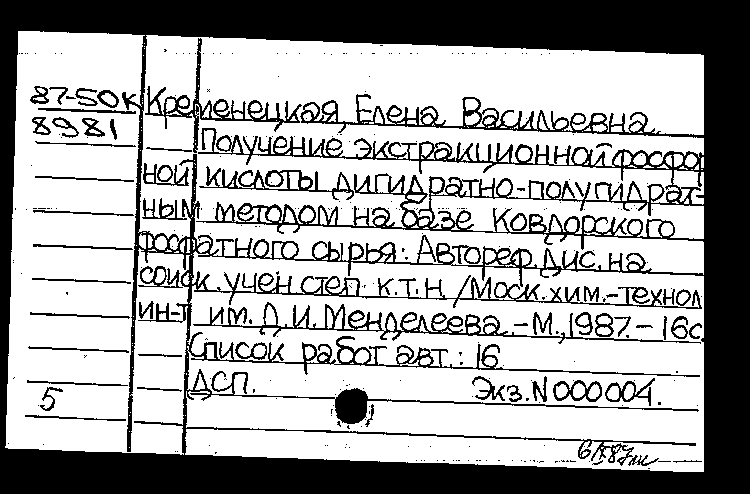 87-50к Кременецкая, Елена Васильевна
8981 Получение экстракционной фосфор
ной кислоты дигидратно-полугидрат-
ным методом на базе Ковдорского
фосфатного сырья: Автореф. Дис. на
соиск. учен. степ. к.т.н. /Моск. хим.-технол
ин-т им. Д.И. Менделеева. - М., 1987. - 16с.
Список работ авт.: 16
ДСП. Экз. N 000004.
5